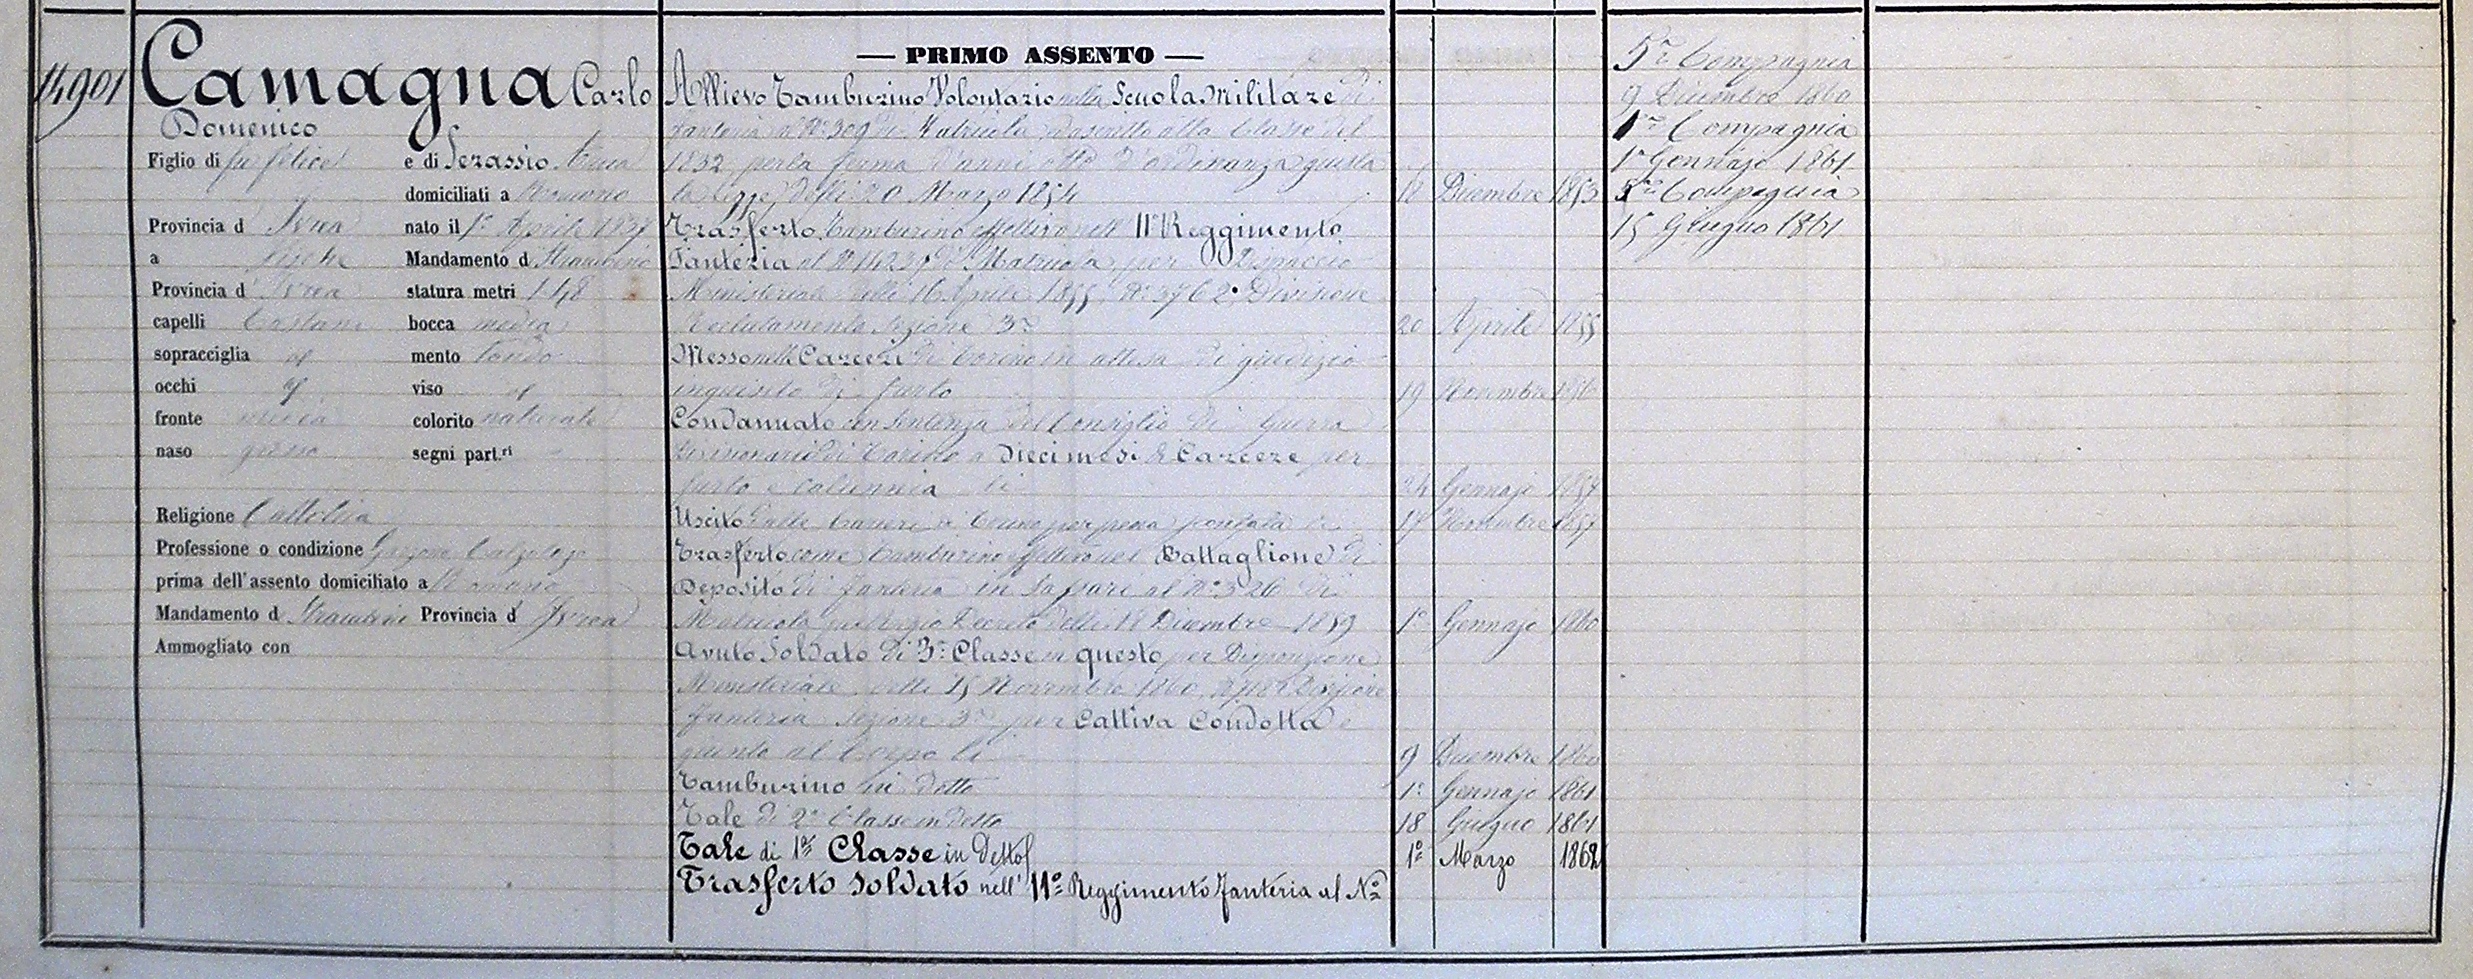 14901
Camagna Carlo
Domenico
Figlio di fu Felice e di Serassio Anna
domiciliati a Romano
Provincia d Ivrea nato il 1° Aprile 1837
a Mandamento d Strambino
Provincia d' Ivrea statura metri 1.48
capelli Castani bocca media
sopracciglia id mento tondo
occhi id viso id
fronte media colorito naturale
naso grosso segni part.ri -
Religione Cattolica
Professione o condizione Garzone Calzolajo
prima dell'assento domiciliato a Romano
Mandamento d Strambino Provincia d' Ivrea
Ammogliato con
— PRIMO ASSENTO —
Allievo Tamburino Volontario nella Scuola Militare di
fanteria al N° 309 di Matricola ascritto alla Classe del
1832 per la ferma d'anni otto d'ordinanza giusta
la legge delli 20 Marzo 1854 18 Dicembre 1853
Trasferto Tamburino effettivo nell' 11° Reggimento
Fanteria al N° 14237 di Matricola per Dispaccio
Ministeriale delli 16 Aprile 1855 N° 3762 Divisione
Reclutamento Sezione 3ª 20 Aprile 1855
Messo nelle Carceri di Torino in attesa di giudizio
inquisito di furto 19 Novembre 1856
Condannato con sentenza del Consiglio di Guerra
Divisionario di Torino a Dieci mesi di Carcere per
furto e calunnia li 24 Gennajo 1857
Uscito dalle Carceri di Torino per pena scontata li 17 Novembre 1857
Trasferto come Tamburino effettivo nel Battaglione di
Deposito di fanteria in Sassari al N° 326 di
Matricola per Regio Decreto delli 18 Dicembre 1859 1° Gennajo 1860
Avuto Soldato di 3ª Classe in questo per Disposizione
Ministeriale delli 15 Novembre 1860 Divisione
fanteria Sezione 3ª per Cattiva Condotta e
giunto al Corpo li 9 Dicembre 1860
Tamburino in detto 1° Gennajo 1861
Tale di 2ª Classe in detto 18 Giugno 1861
Tale di 1ª Classe in detto 1° Marzo 1862
Trasferto Soldato nell' 11° Reggimento Fanteria al N°
5ª Compagnia
9 Dicembre 1860
1ª Compagnia
1° Gennajo 1861
5ª Compagnia
15 Giugno 1861